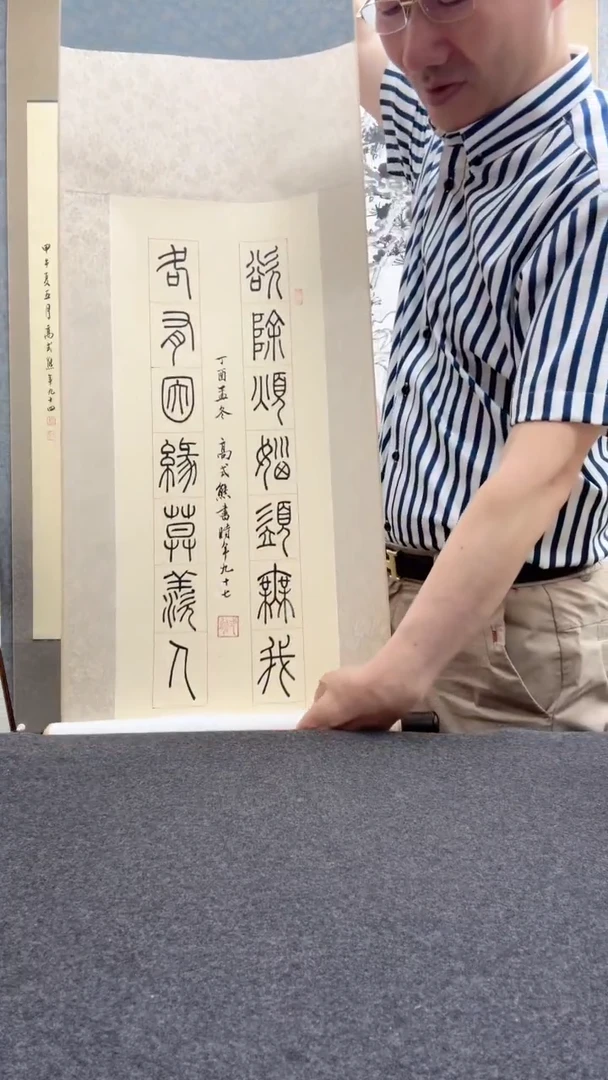 欲除煩惱須無我
各有因緣莫羨人
丁酉孟冬 高式熊書時年九十七
甲午夏五月高式熊年九十四